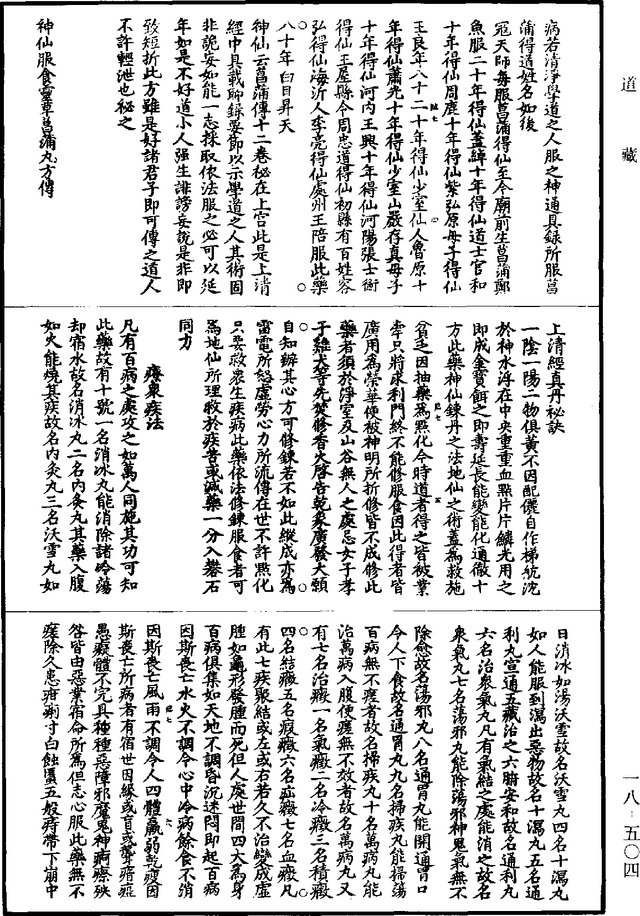 道藏
病若清淨學道之人服之神通具録所服菖
蒲得道姓名如後
寇天師每服菖蒲得仙至今廟前生菖蒲鄭
魚服二十年得仙蓋緯十年得仙道士官和
十年得仙周麃十年得仙紫弘原母子得仙
王良年八十二十年得仙少室仙人魯原十
年得仙蕭光十年得仙少室山嚴存真母子
十年得仙河内王興十年得仙河陽張士衡
得仙王屋縣令周忠道得仙初縣有百姓容
弘得仙海沂人李亮得仙處州王陪服此藥
八十年白日昇天
神仙云菖蒲傳十二卷秘在上宫此是上清
經中具載聊録要節以示學道之人其術固
非詭妄如能一志採取依法服之必可以延
年如是不好道小人強生誹謗妄説是非即
致短折此方雖是好諸君子即可傳之道人
不許輕泄也秘之
神仙服食靈草菖蒲丸方傳
上清經真丹秘訣
一陰一陽二物俱黄不因配儷自作梯航沈
於神水浮在中央重重血點片片鱗光用之
即成金寶餌之即壽延長能變能化通徹十
方此藥神仙鍊丹之法地仙之術蓋爲救施
貧乏因抽藥爲點化今時道者得之皆被業
牽只將求利門終不能修服食因此得者皆
廣用爲榮華便被神明所折修皆不成修此
藥者須於淨室及山谷無人之處忌女子孝
子雞犬等先焚修香火啓告乾象廣發大願
自知辦其心方可修鍊若不如此縱成亦爲
雷電所怒虚勞心力所流傳在世不許點化
只要救衆生疾病此藥依法修鍊服食者可
爲地仙所理救於疾苦或減藥一分入礬石
同力
療衆疾法
凡有百病之處攻之如萬人同施其功可知
此藥故有十號一名消冰丸能消除諸冷蕩
却宿水故名消冰丸二名内灸丸其藥入腹
如火能燒其疾故名内灸丸三名沃雪丸如
日消冰如湯沃雪故名沃雪丸四名十瀉丸
如人能服到瀉出惡物故名十瀉丸五名通
利丸宣通五藏治之六腑安和故名通利丸
六名治衆氣丸凡有氣結之處能消之故名
衆氣丸七名蕩邪丸能除蕩邪神鬼氣無不
除愈故名蕩邪丸八名通胃丸能開通胃口
令人下食故名通胃丸九名掃疾丸能掃蕩
百病無不瘥者故名掃疾丸十名萬病丸能
治萬病入腹便瘥無不效者故名萬病丸又
有七名治癥一名氣癥二名冷癥三名積癥
四名結癥五名瘕癥六名症癥七名血癥凡
有此七疾聚結或左或右若久不治變成虚
腫如龜形發腫而死但人處世間四大爲身
百病俱集如天地不調昏沉迷悶即起百病
因斯喪亡水火不調令心中冷病餘食不消
因斯喪亡風雨不調令人四體羸弱乾瘦因
斯喪亡所病者有宿世因緣或盲或聾瘖瘂
愚癡體不完具種種惡障邪魔鬼神痾瘵殃
咎皆由惡業宿命所爲但志心服此藥無不
瘥除久患疳痢寸白蝕䘌五般痔帶下崩中
一八‐五〇四